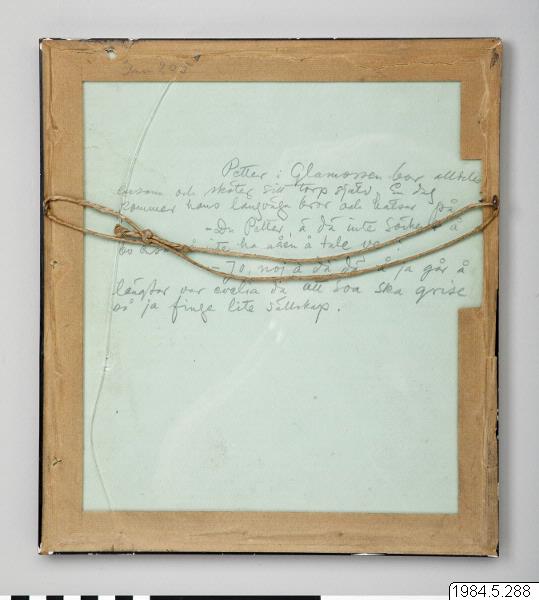 Inv 205
Petter i Glamossen bor alldeles
ensam och sköter sitt torp själv. En dag
kommer hans långväga bror och hälsar på
- Du Petter, ä dä inte
bo å inte ha nåen å tale ve
- Jo, noj ä dä dä å ja går å
längtar var evelia da att soa ska grise
så ja finge lite sällskap.
1984.5.288